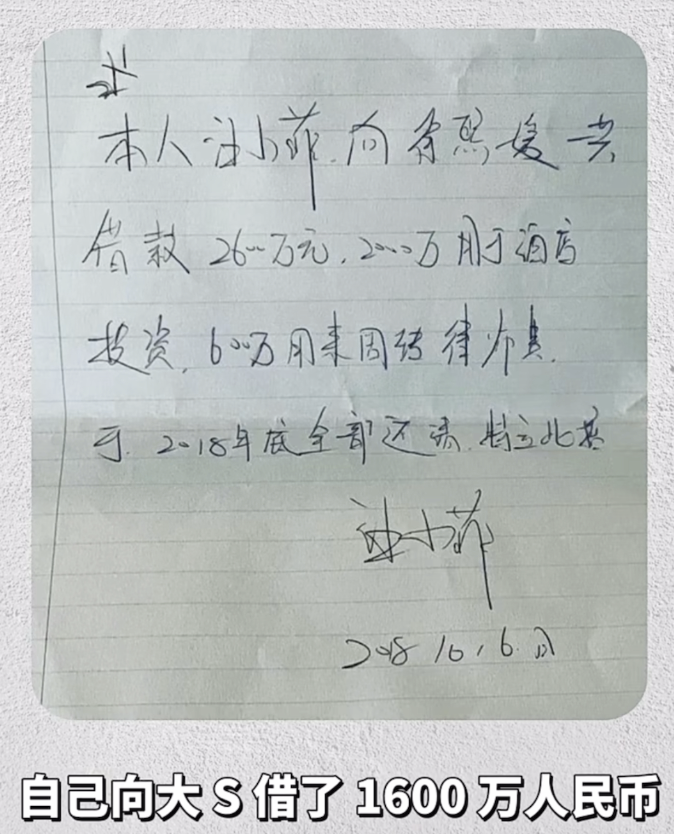 本人汪小菲.向徐熙媛共
借款2600万元.2000万用于酒店
投资.600万用来周转律师费.
于.2018年底全部还清.特立此据
汪小菲
2018.10.6.日
自己向大S借了1600万人民币